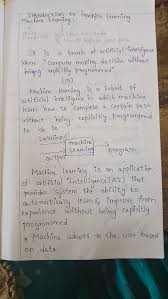 Introduction to machine learning
Machine learning:
It is a branch of artificial intelligence
when "computer making decision without
being explicitly programmed"
(or)
Machine learning is a subset of
artificial intelligence in which machine
learn how to complete a certain task
without being explicitly programmed
to do so
Data
machine
learning
program
output
Machine learning is an application
of artificial intelligence (AI) that
provides system the ability to
automatically learn & improve from
experience without being explicitly
programmed
* Machine adapts to the user based
on data